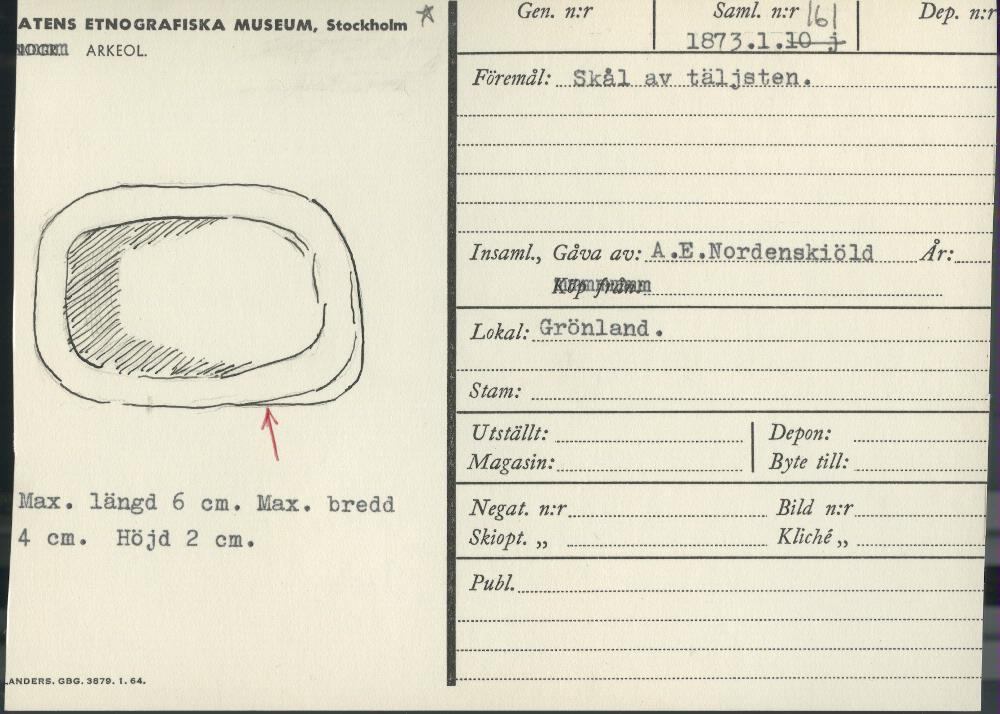 ATENS ETNOGRAFISKA MUSEUM, Stockholm
ARKEOL.
Max. längd 6 cm. Max. bredd
4 cm. Höjd 2 cm.
ANDERS. GBG. 3879. 1. 64.
Gen. n:r
Saml. n:r 161
1873.1.10 j
Dep. n:r
Föremål: Skål av täljsten.
Insaml., Gåva av: A.E.Nordenskiöld År:
Köp från:
Lokal: Grönland.
Stam:
Utställt:
Depon:
Magasin:
Byte till:
Negat. n:r
Bild n:r
Skiopt. „
Kliché „
Publ.